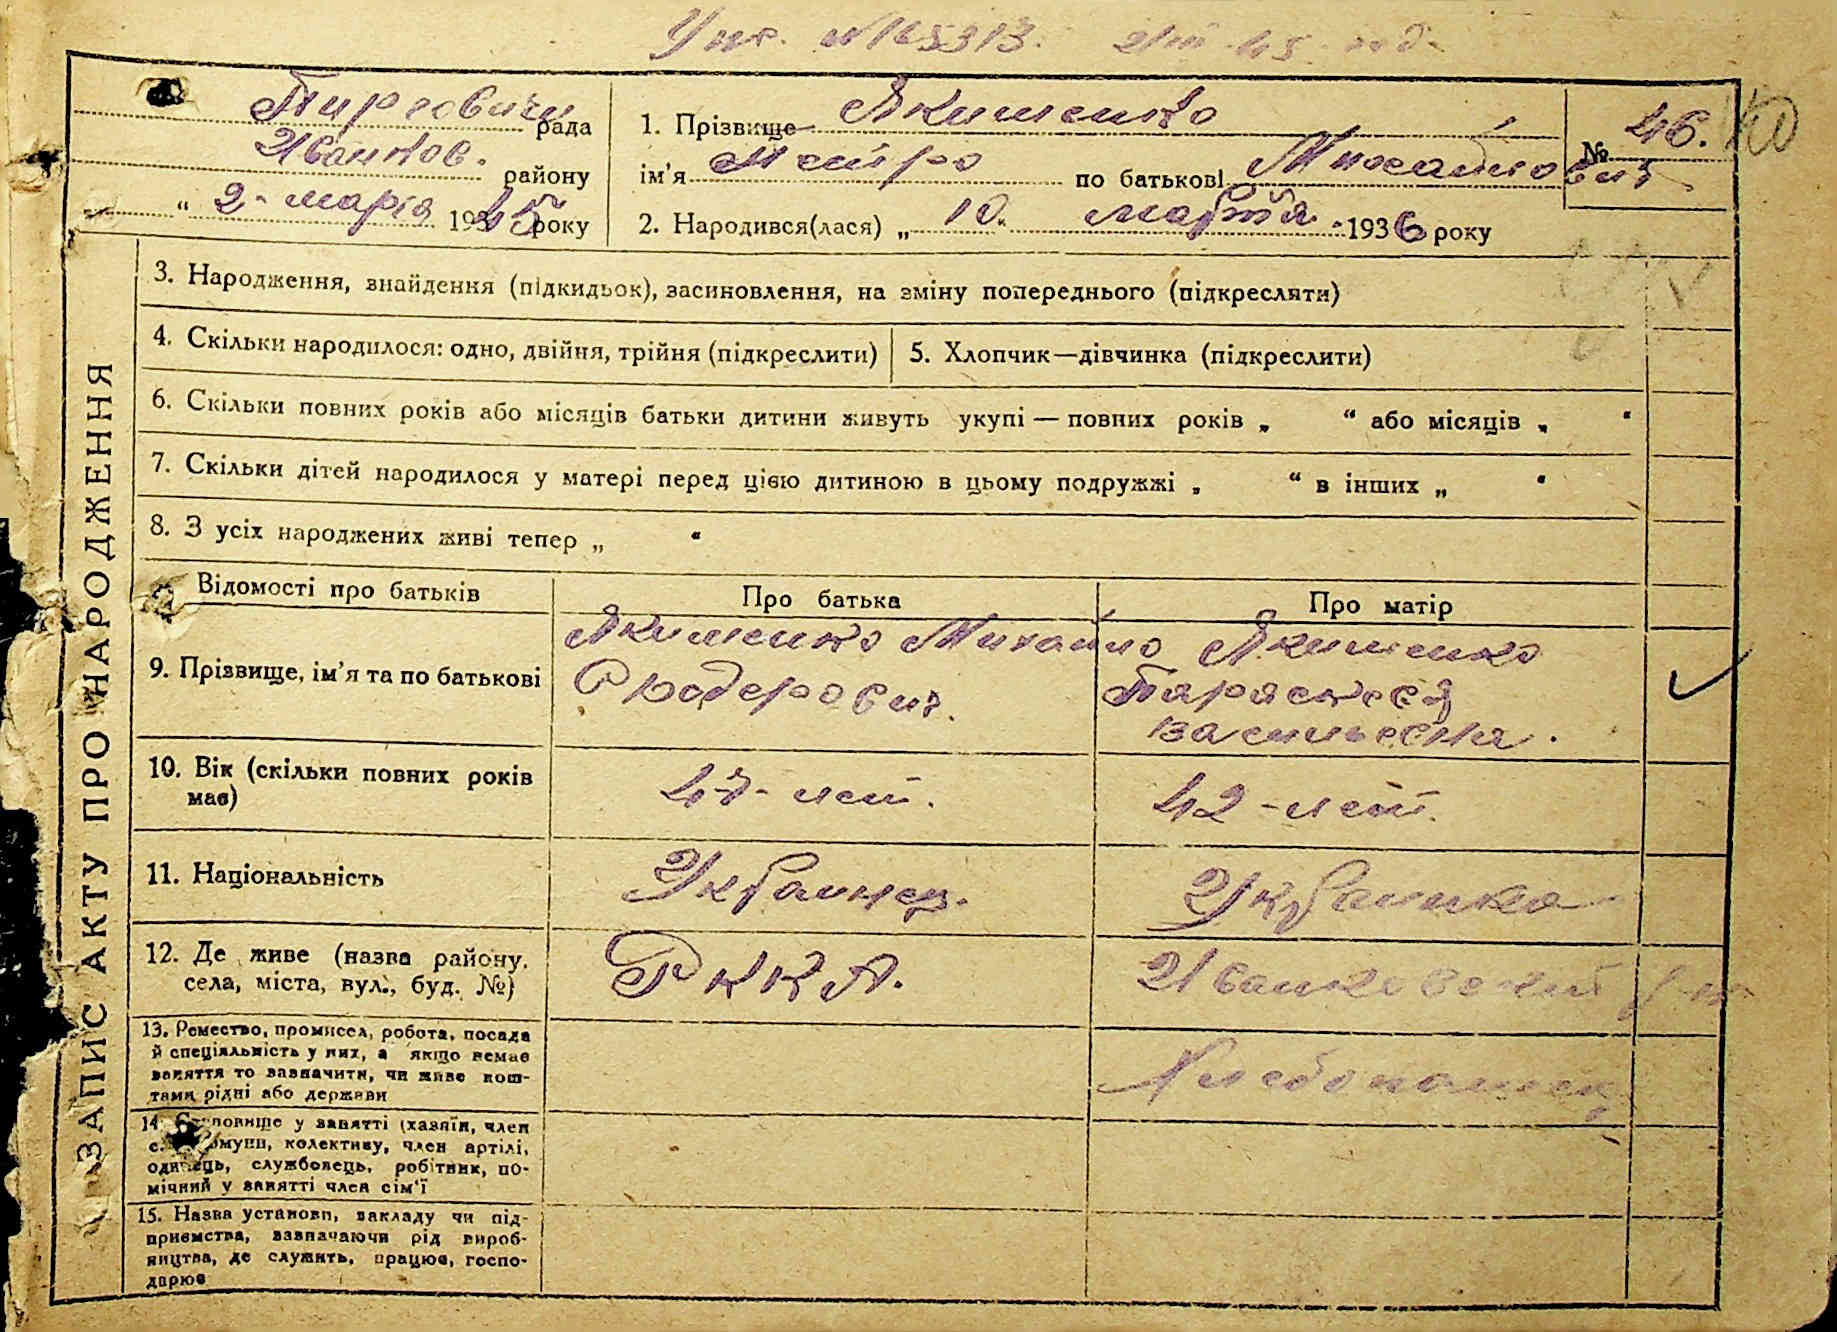 №165313. 45 год.
рада
Іванков. району
„ 2 - марта 1945 року
1. Прізвище Якименко
ім'я Петро по батькові Михайлович
№ 46.
2. Народився(лася) „ 10 " марта 1936 року
ЗАПИС АКТУ ПРО НАРОДЖЕННЯ
3. Народження, знайдення (підкидьок), засиновлення, на зміну попереднього (підкреслити)
4. Скільки народилося: одно, двійня, трійня (підкреслити)
5. Хлопчик—дівчинка (підкреслити)
6. Скільки повних років або місяців батьки дитини живуть укупі — повних років „ “ або місяців „ “
7. Скільки дітей народилося у матері перед цією дитиною в цьому подружжі „ “ в інших „ “
8. З усіх народжених живі тепер „ “
Відомості про батьків
Про батька
Про матір
9. Прізвище, ім'я та по батькові
Якименко Михайло
Фюдерович.
Якименко
Параскева
Васильевна.
10. Вік (скільки повних років
має)
47 - лет.
42 - лет.
11. Національність
Украинец.
Украинка
12. Де живе (назва району,
села, міста, вул., буд. №)
РККА.
Иванковский р-н
13. Ремество, промисел, робота, посада
й спеціяльність у них, а якщо немає
заняття то зазначити, чи живе кош-
тами рідні або держави
Хлебопашец
14. Становище у занятті (хазяїн, член
с. комуни, колективу, член артілі,
одинець, службовець, робітник, по-
мічний у занятті член сім'ї
15. Назва установи, закладу чи під-
приємства, зазначаючи рід вироб-
ництва, де служить, працює, госпо-
дарює